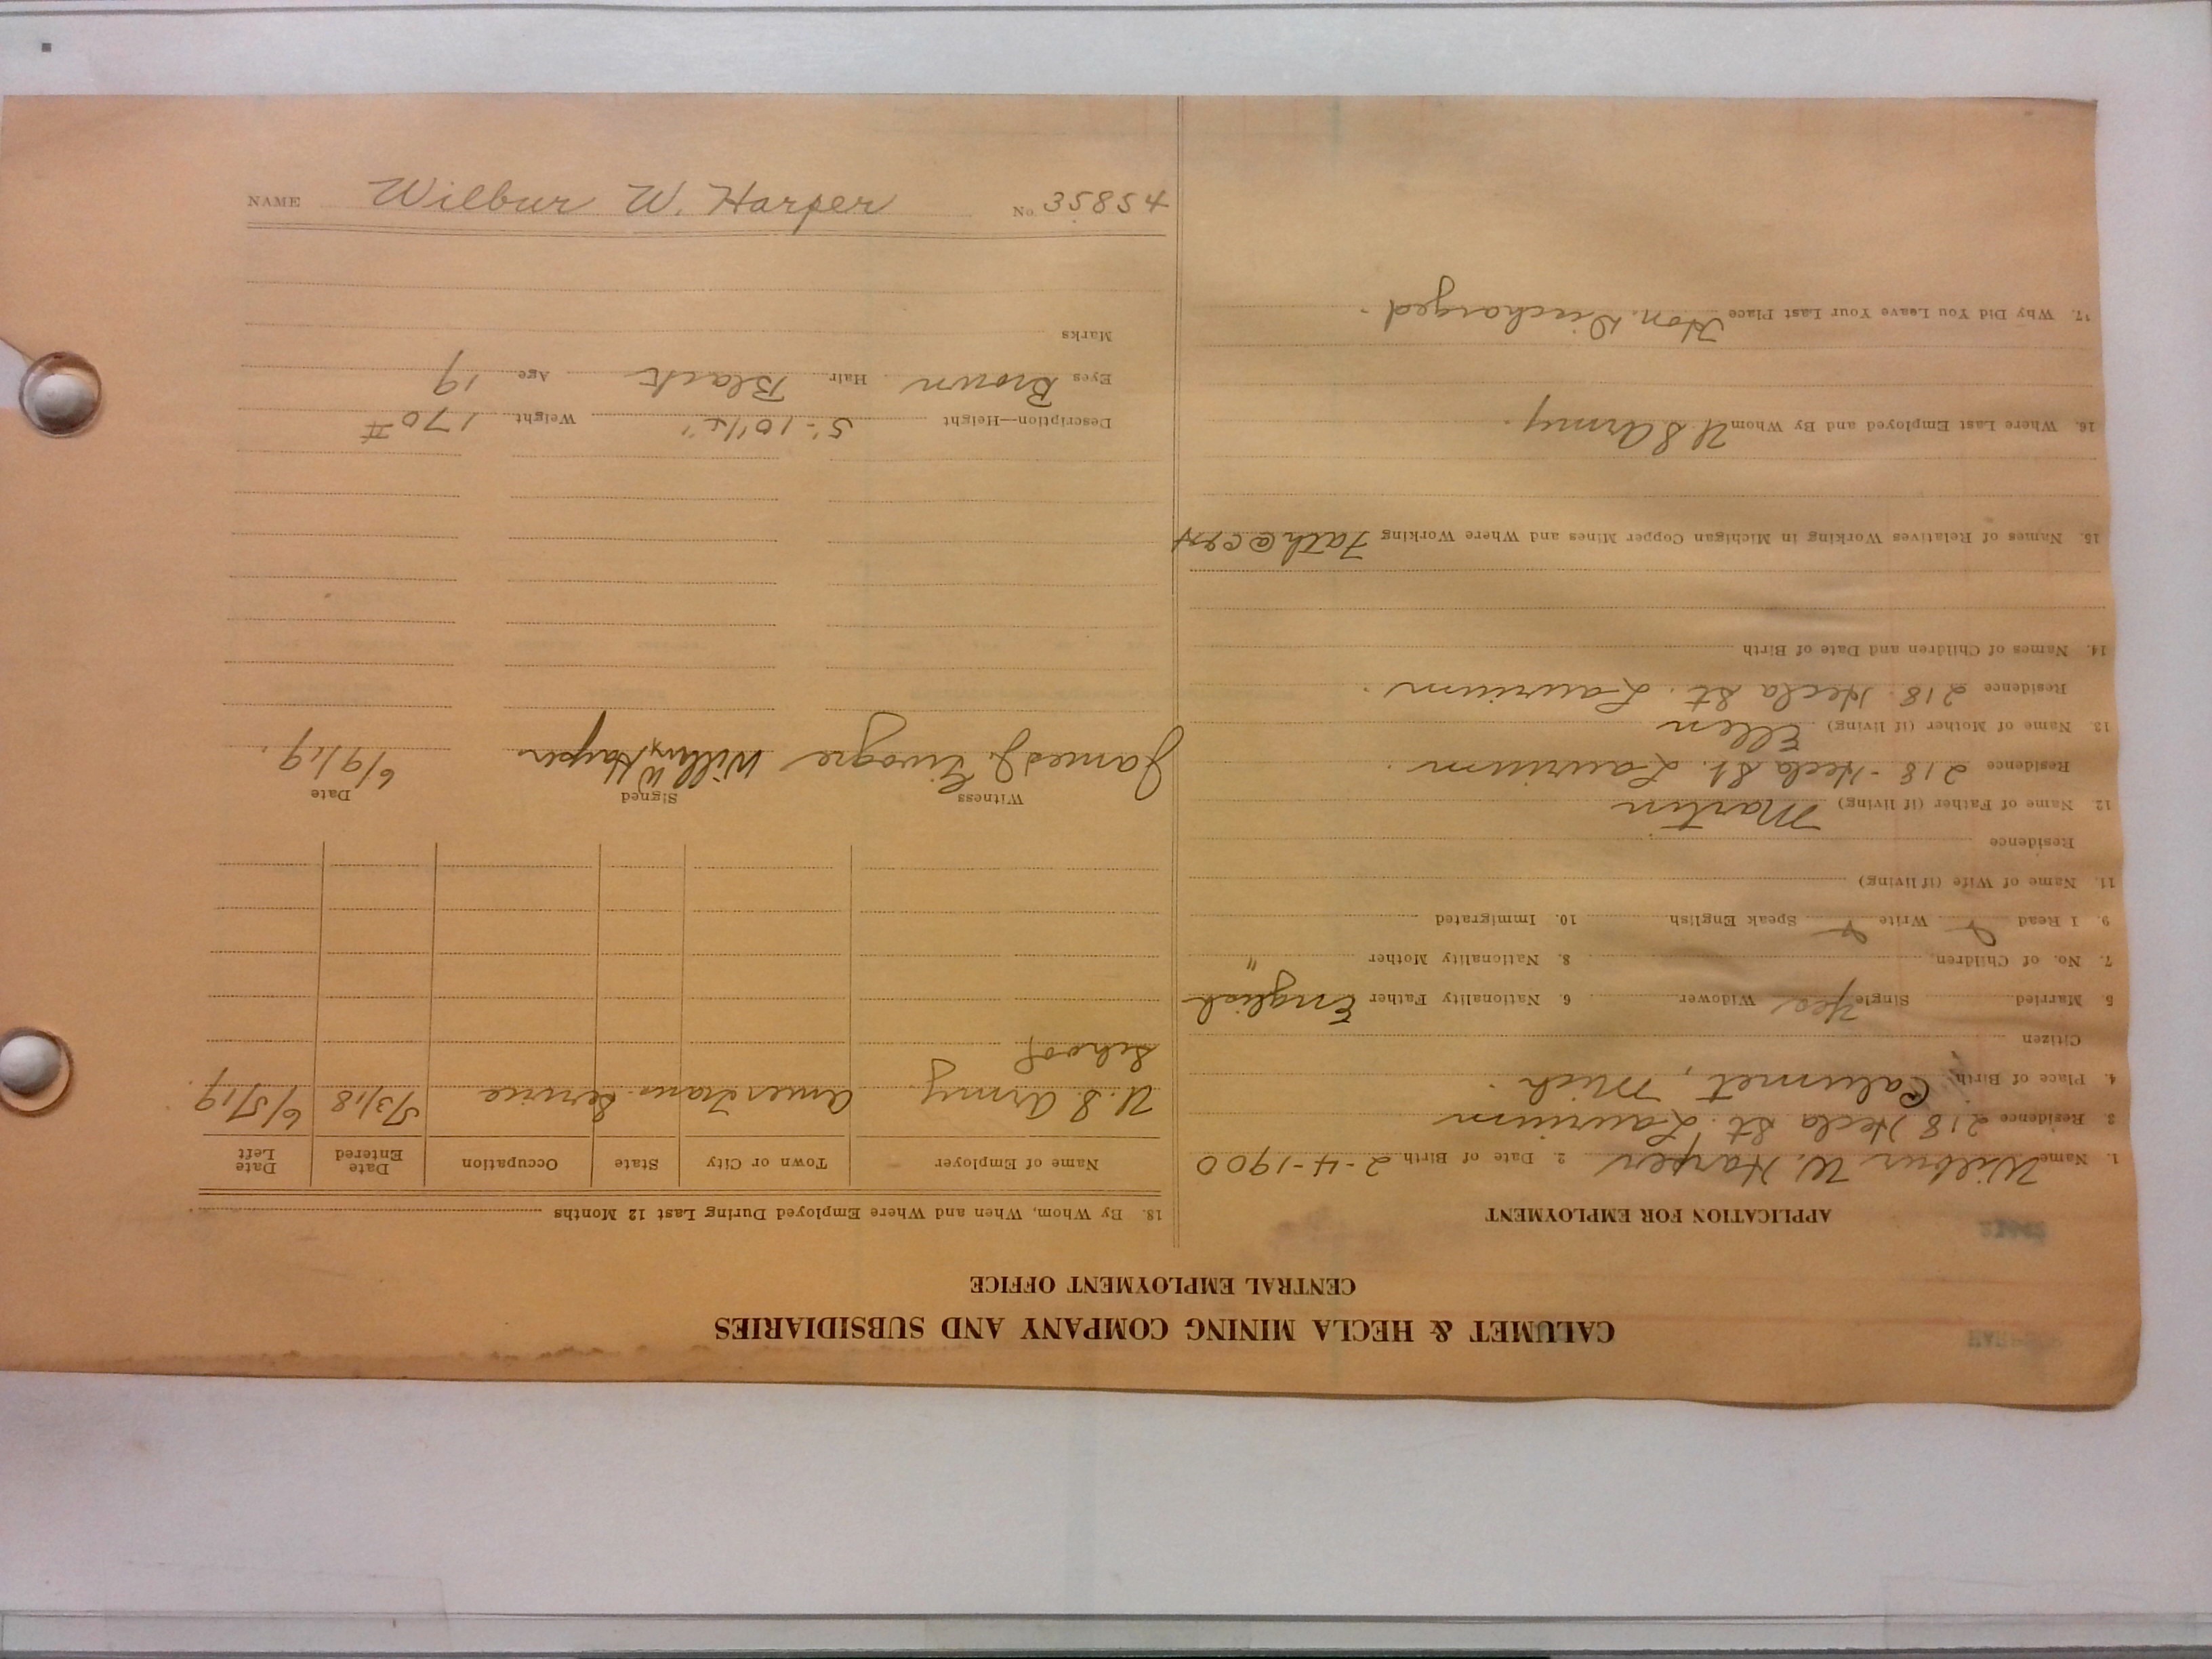 CALUMET & HECLA MINING COMPANY AND SUBSIDIARIES
CENTRAL EMPLOYMENT OFFICE
APPLICATION FOR EMPLOYMENT
1. Name Wilbur W. Harper 2. Date of Birth 2-4-1900
3. Residence 218 Hecla St. Laurium
4. Place of Birth Calumet, Mich.
Citizen
5. Married Single Yes Widower 6. Nationality Father English
7. No. of Children 8. Nationality Mother "
9. I Read Write Speak English 10. Immigrated
11. Name of Wife (if living)
Residence
12. Name of Father (if living) Martin
Residence 218 - Hecla St. Laurium.
13. Name of Mother (if living) Ellen
Residence 218 Hecla St. Laurium.
14. Names of Children and Date of Birth
15. Names of Relatives Working in Michigan Copper Mines and Where Working Fath @ C&H
16. Where Last Employed and By Whom U S Army.
17. Why Did You Leave Your Last Place Hon. Discharged.
18. By Whom, When and Where Employed During Last 12 Months
Name of Employer Town or City State Occupation Date Entered Date Left
U. S. Army Amer Trans. Service 5/3/18 6/5/19.
School
Witness Signed Date
James J. Wilbur W Harper 6/9/19.
Description—Height 5'-10 1/2" Weight 170 #
Eyes Brown Hair Black Age 19
Marks
NAME Wilbur W. Harper No. 35854